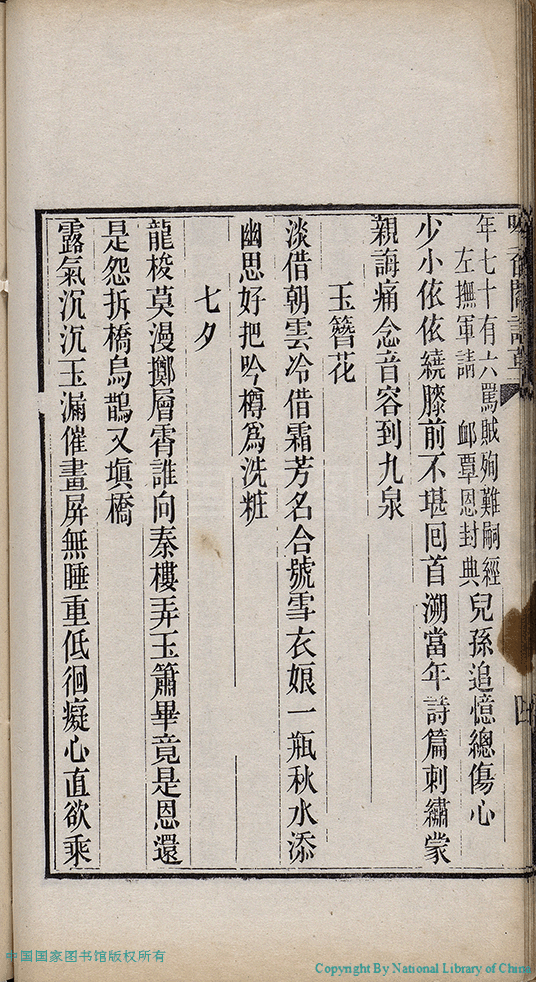 年七十有六罵賊殉難嗣經
左撫軍請　卹覃恩封典
兒孫追憶總傷心
少小依依繞膝前不堪囘首溯當年詩篇刺繡蒙
親誨痛念音容到九泉
玉簪花
淡借朝雲冷借霜芳名合號雪衣娘一瓶秋水添
幽思好把吟樽爲洗粧
七夕
龍梭莫漫擲層霄誰向秦樓弄玉簫畢竟是恩還
是怨拆橋烏鵲又塡橋
露氣沉沉玉漏催畫屏無睡重低徊癡心直欲乘
中国国家图书馆版权所有
Copyright By National Library of China